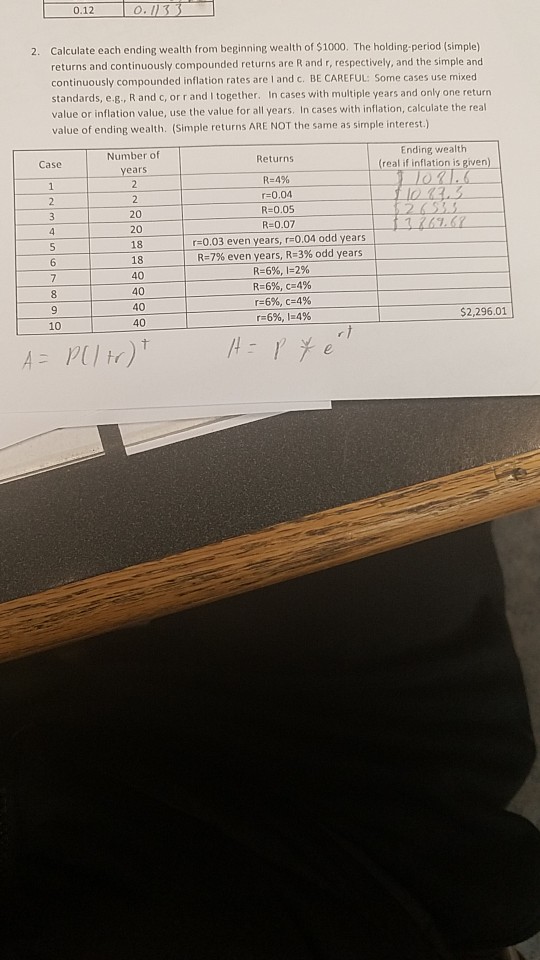 0.12 0.1133
2. Calculate each ending wealth from beginning wealth of $1000. The holding-period (simple)
returns and continuously compounded returns are R and r, respectively, and the simple and
continuously compounded inflation rates are I and c. BE CAREFUL: Some cases use mixed
standards, e.g., R and c, or r and I together. In cases with multiple years and only one return
value or inflation value, use the value for all years. In cases with inflation, calculate the real
value of ending wealth. (Simple returns ARE NOT the same as simple interest.)
Case Number of years Returns Ending wealth (real if inflation is given)
1 2 R=4% $1081.6
2 2 r=0.04 $1083.3
3 20 R=0.05
4 20 R=0.07 $3869.68
5 18 r=0.03 even years, r=0.04 odd years
6 18 R=7% even years, R=3% odd years
7 40 R=6%, I=2%
8 40 R=6%, c=4%
9 40 r=6%, c=4%
10 40 r=6%, I=4% $2,296.01
A = P(1+r)^t A = P * e^rt